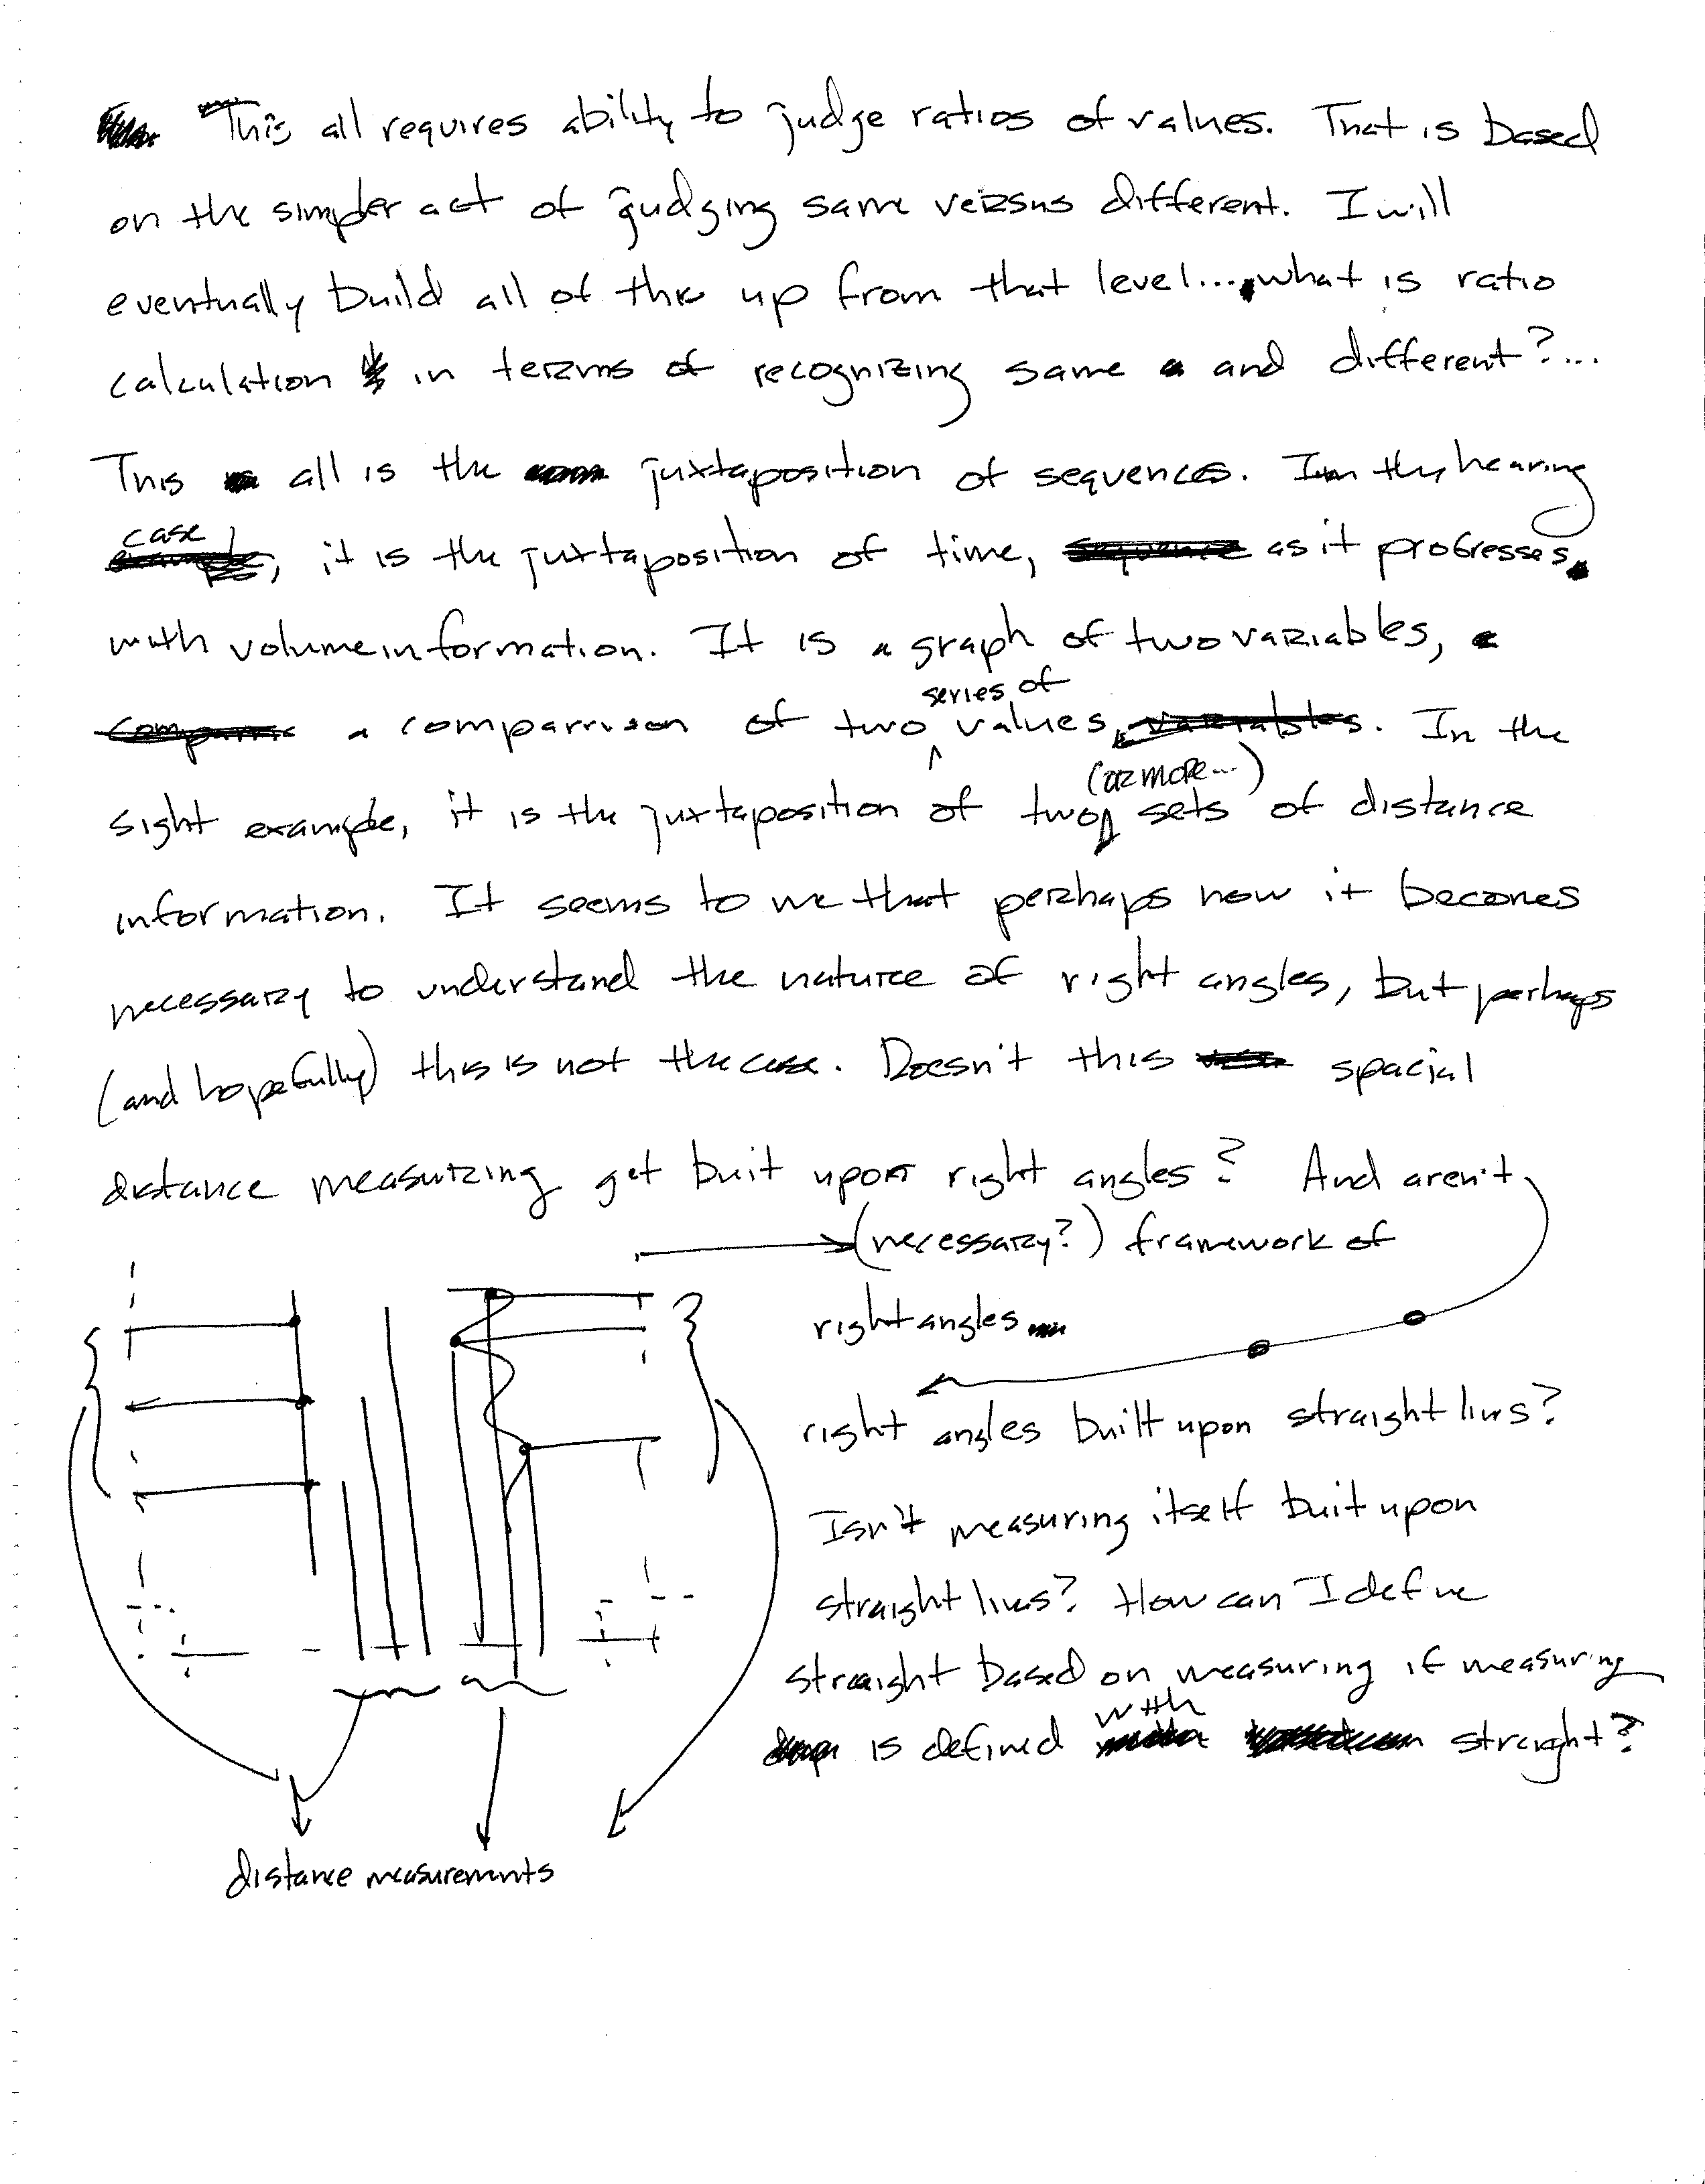 This all requires ability to judge ratios of values. That is based
on the simpler act of judging same versus different. I will
eventually build all of this up from that level... what is ratio
calculation in terms of recognizing same and different?...
This all is the juxtaposition of sequences. In the hearing
case, it is the juxtaposition of time, as it progresses
with volume information. It is a graph of two variables,
a comparrison of two series of values. In the
sight example, it is the juxtaposition of two (or more...) sets of distance
information. It seems to me that perhaps now it becomes
necessary to understand the nature of right angles, but perhaps
(and hopefully) this is not the case. Doesn't this spacial
distance measurizing get buit upon right angles? And aren't
(necessary?) framework of
right angles
right angles built upon straight lines?
Isn't measuring itself buit upon
straight lines? How can I define
straight based on measuring if measuring
is defined with straight?
distance measuremnts